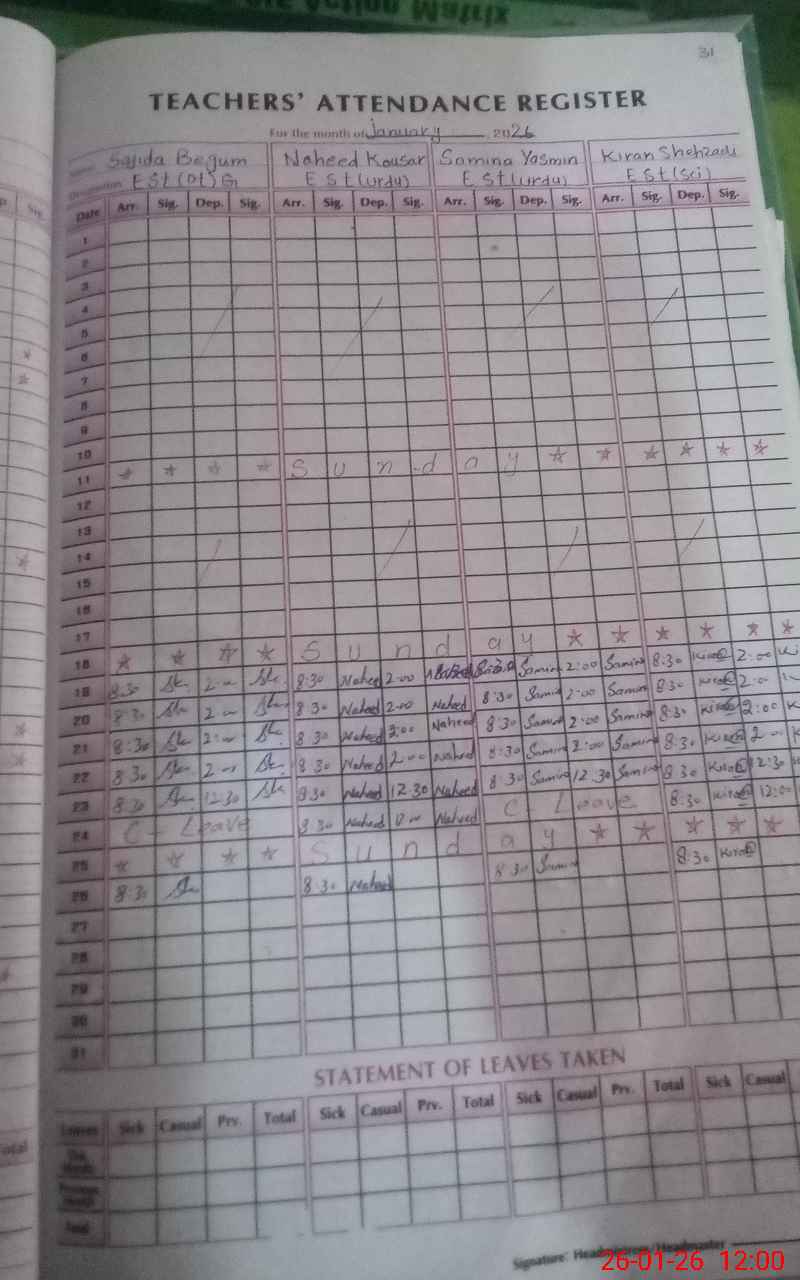 Action Matrix
31
TEACHERS' ATTENDANCE REGISTER
For the month of January 2026
Name Sajida Begum Naheed Kousar Samina Yasmin Kiran Shehzadi
Designation EST(DT)G EST(Urdu) EST(Urdu) EST(Sci)
Date Arr. Sig. Dep. Sig. Arr. Sig. Dep. Sig. Arr. Sig. Dep. Sig. Arr. Sig. Dep. Sig.
1
2
3
4
5
6
7
8
9
10
11 Sunday
12
13
14
15
16
17
18 Sunday
19 8:30 2:00 8:30 Naheed 2:00 Naheed 8:30 Samina 2:00 Samina 8:30 Kiran 2:00
20 8:30 2:00 8:30 Naheed 2:00 Naheed 8:30 Samina 2:00 Samina 8:30 Kiran 2:0
21 8:30 2:00 8:30 Naheed 2:00 Naheed 8:30 Samina 2:00 Samina 8:30 Kiran 2:00 K
22 8:30 2:00 8:30 Naheed 2:00 Naheed 8:30 Samina 2:00 Samina 8:30 Kiran 2:00 K
23 8:30 12:30 8:30 Naheed 12:30 Naheed 8:30 Samina 12:30 Samina 8:30 Kiran 12:30
24 C - Leave 8:30 Naheed Naheed C - Leave 8:30 Kiran 12:00
25 Sunday
26 8:30 8:30 Naheed 8:30 Samina 8:30 Kiran
27
28
29
30
31
STATEMENT OF LEAVES TAKEN
Leaves Sick Casual Prv. Total Sick Casual Prv. Total Sick Casual Prv. Total Sick Casual
Total
Signature: Headmistress/Headmaster
26-01-26 12:00